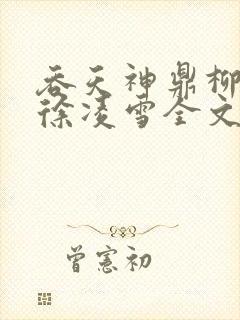 吞天神鼎柳
徐凌雪全文
曾宪初